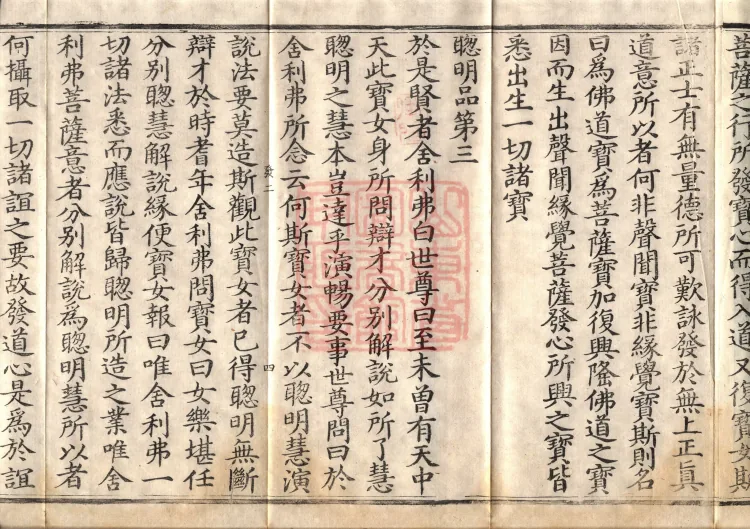 菩薩之行所發寶心而得入道又復寶女斯
諸正士有無量德所可歎詠發於無上正真
道意所以者何非聲聞寶非緣覺寶斯則名
曰為佛道寶為菩薩寶加復興隆佛道之寶
因而生出聲聞緣覺菩薩發心所興之寶皆
悉出生一切諸寶
聦明品第三
於是賢者舍利弗白世尊曰至未曾有天中
天此寶女身所問辯才分別解說如所了慧
聦明之慧本豈達乎演暢要事世尊問曰於
舍利弗所念云何斯寶女者不以聦明慧演
說法要莫造斯觀此寶女者已得聦明無斷
辯才於時耆年舍利弗問寶女曰女樂堪任
分別聦慧解說緣便寶女報曰唯舍利弗一
切諸法悉而應說皆歸聦明所造之業唯舍
利弗菩薩意者分別解說為聦明慧所以者
何攝取一切諸誼之要故發道心是為於誼
二
四